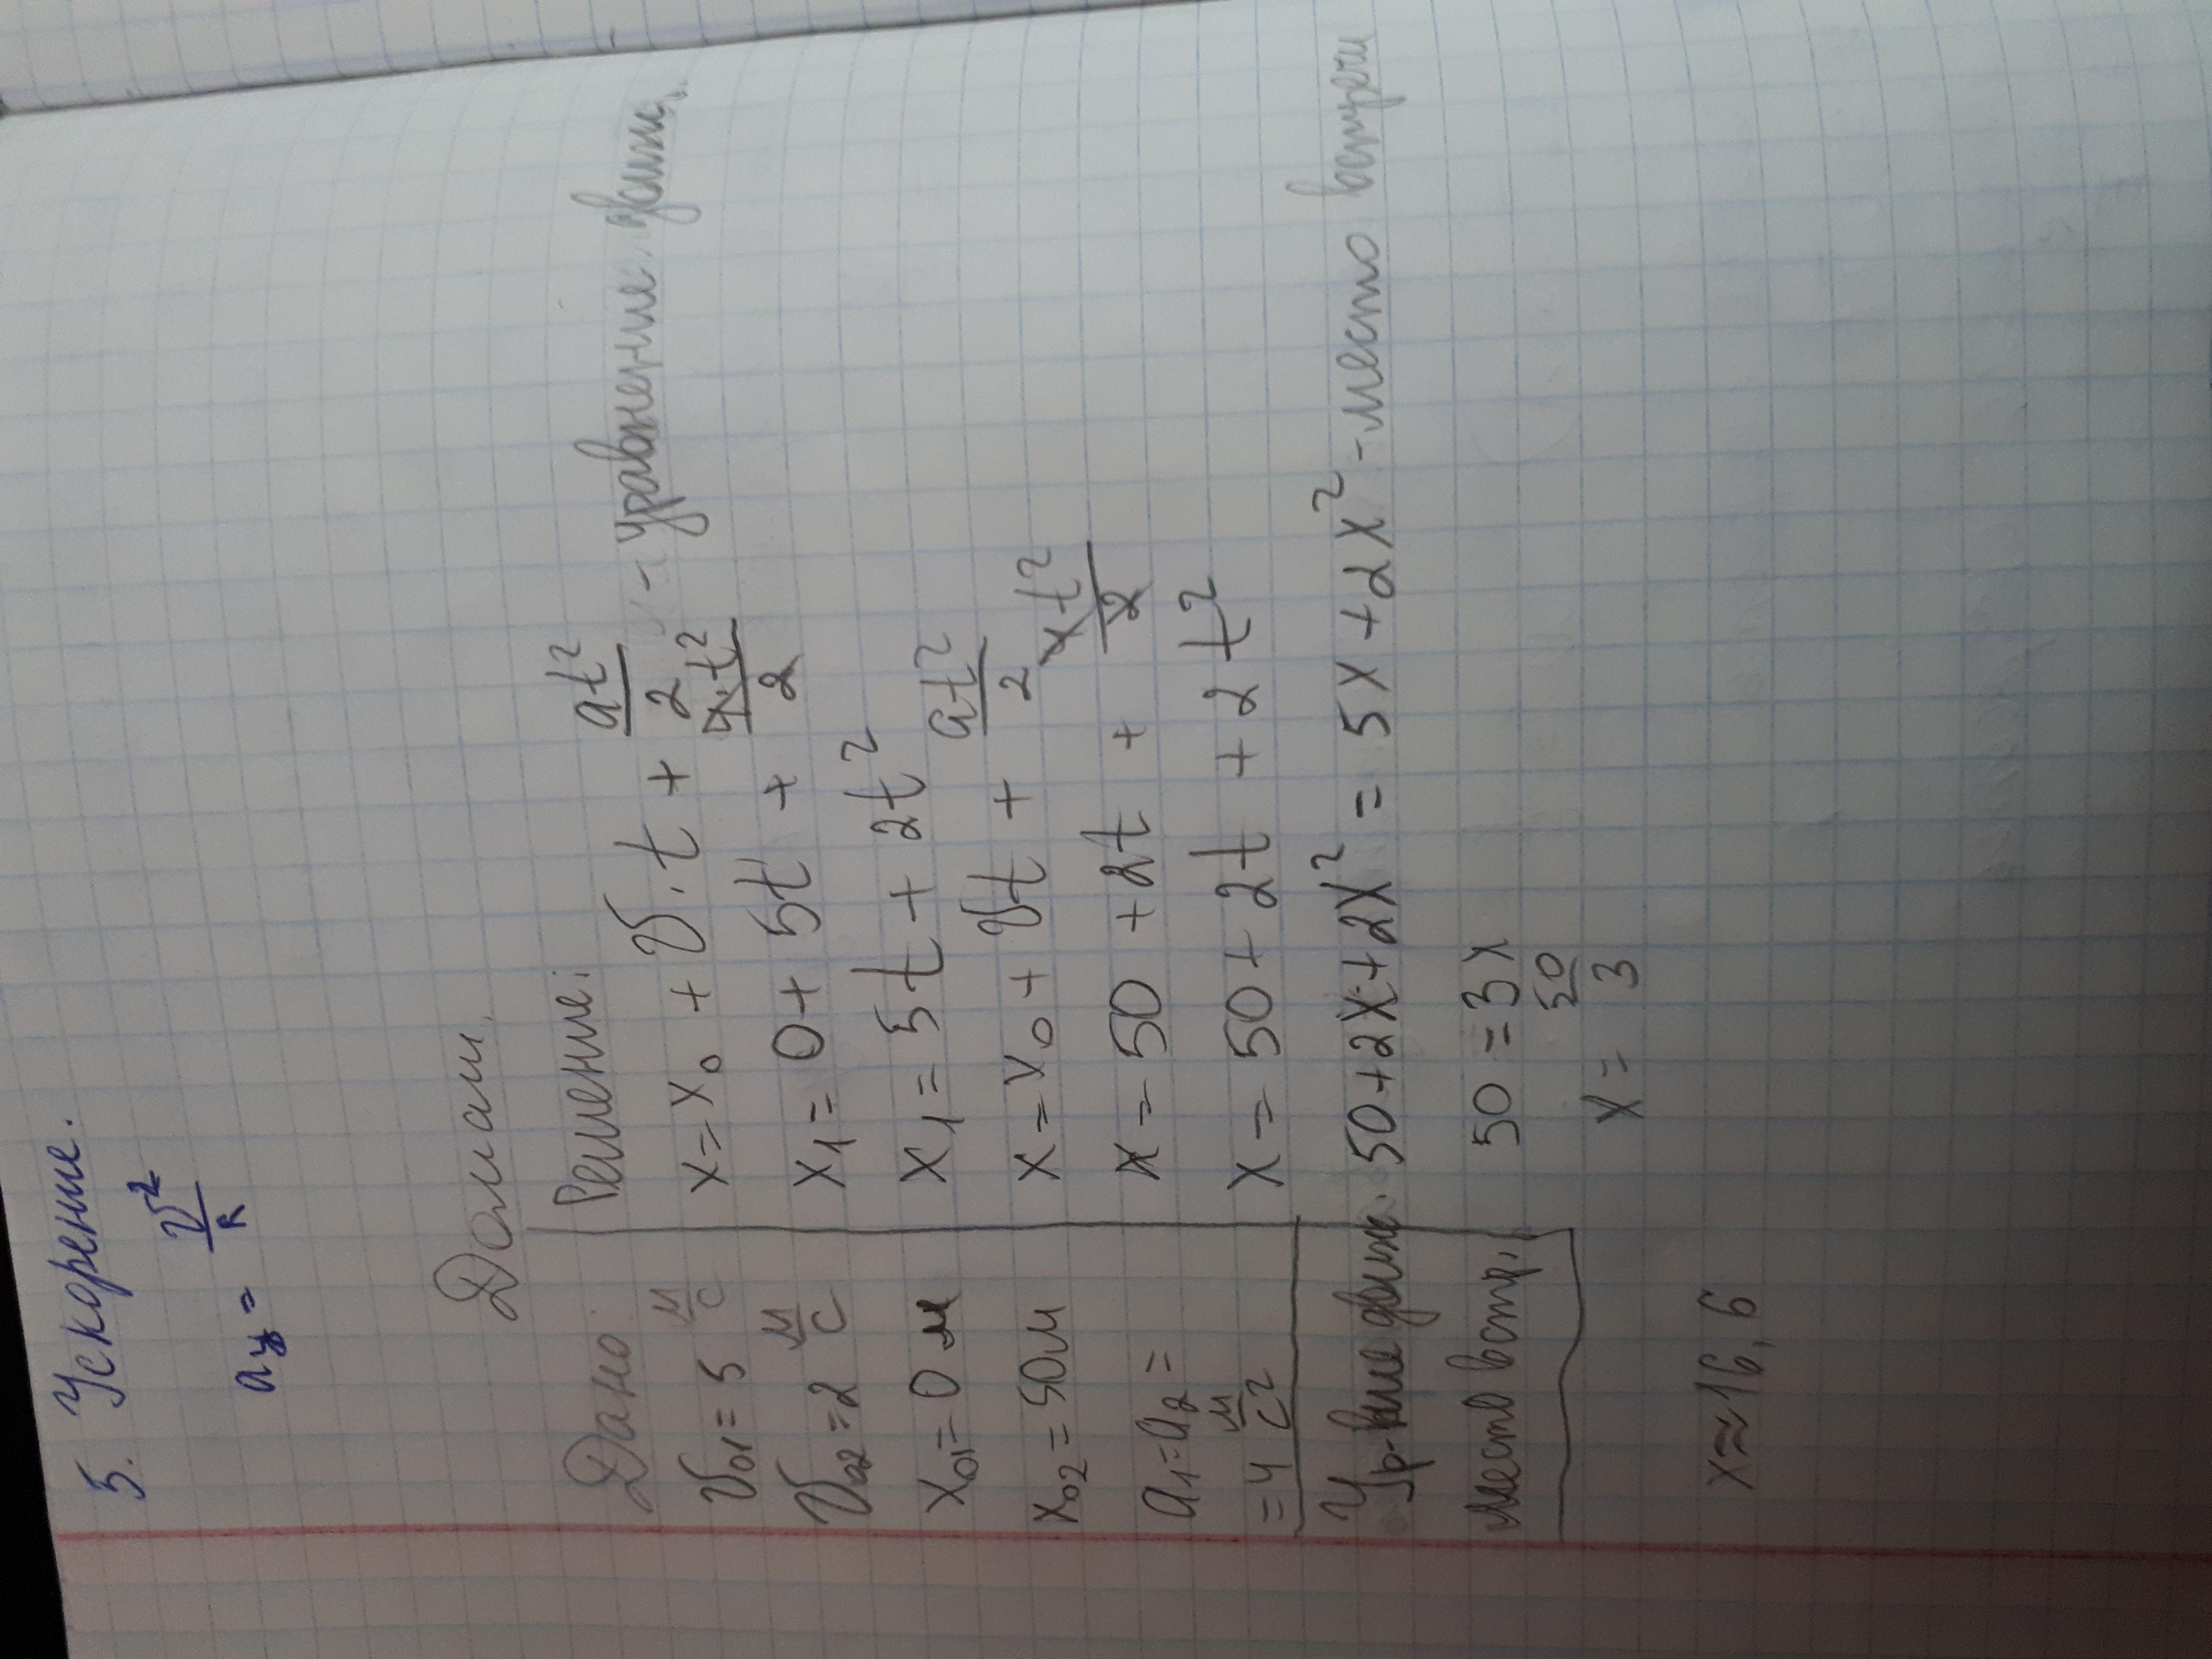 5. Ускорение.
aу = υ²/R
Домаш.
Дано:
υ01 = 5 м/с
υ02 = 2 м/с
x01 = 0 м
x02 = 50м
a1 = a2 =
= 4 м/с²
Ур-ние движ.
место встр.
Решение:
x = x0 + υ·t + at²/2 - уравнение движ.
x1 = 0 + 5t + 4·t²/2
x1 = 5t + 2t²
x = x0 + υt + at²/2
x = 50 + 2t + 4t²/2
x = 50 + 2t + 2t²
50 + 2x + 2x² = 5x + 2x² - место встречи
50 = 3x
x = 50/3
x ≈ 16,6